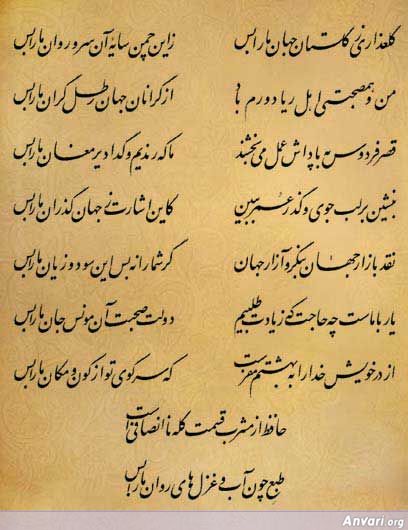 گلعذاری ز گلستان جهان ما را بس زین چمن سایهٔ آن سرو روان ما را بس
من و همصحبتی اهل ریا دورم باد از گرانان جهان رطل گران ما را بس
قصر فردوس به پاداش عمل می‌بخشند ما که رندیم و گدا دیر مغان ما را بس
بنشین بر لب جوی و گذر عمر ببین کاین اشارت ز جهان گذران ما را بس
نقد بازار جهان بنگر و آزار جهان گر شما را نه بس این سود و زیان ما را بس
یار با ماست چه حاجت که زیادت طلبیم دولت صحبت آن مونس جان ما را بس
از در خویش خدا را به بهشتم مفرست که سر کوی تو از کون و مکان ما را بس
حافظ از مشرب قسمت گله ناانصافی است
طبع چون آب و غزل‌های روان ما را بس
Anvari.org